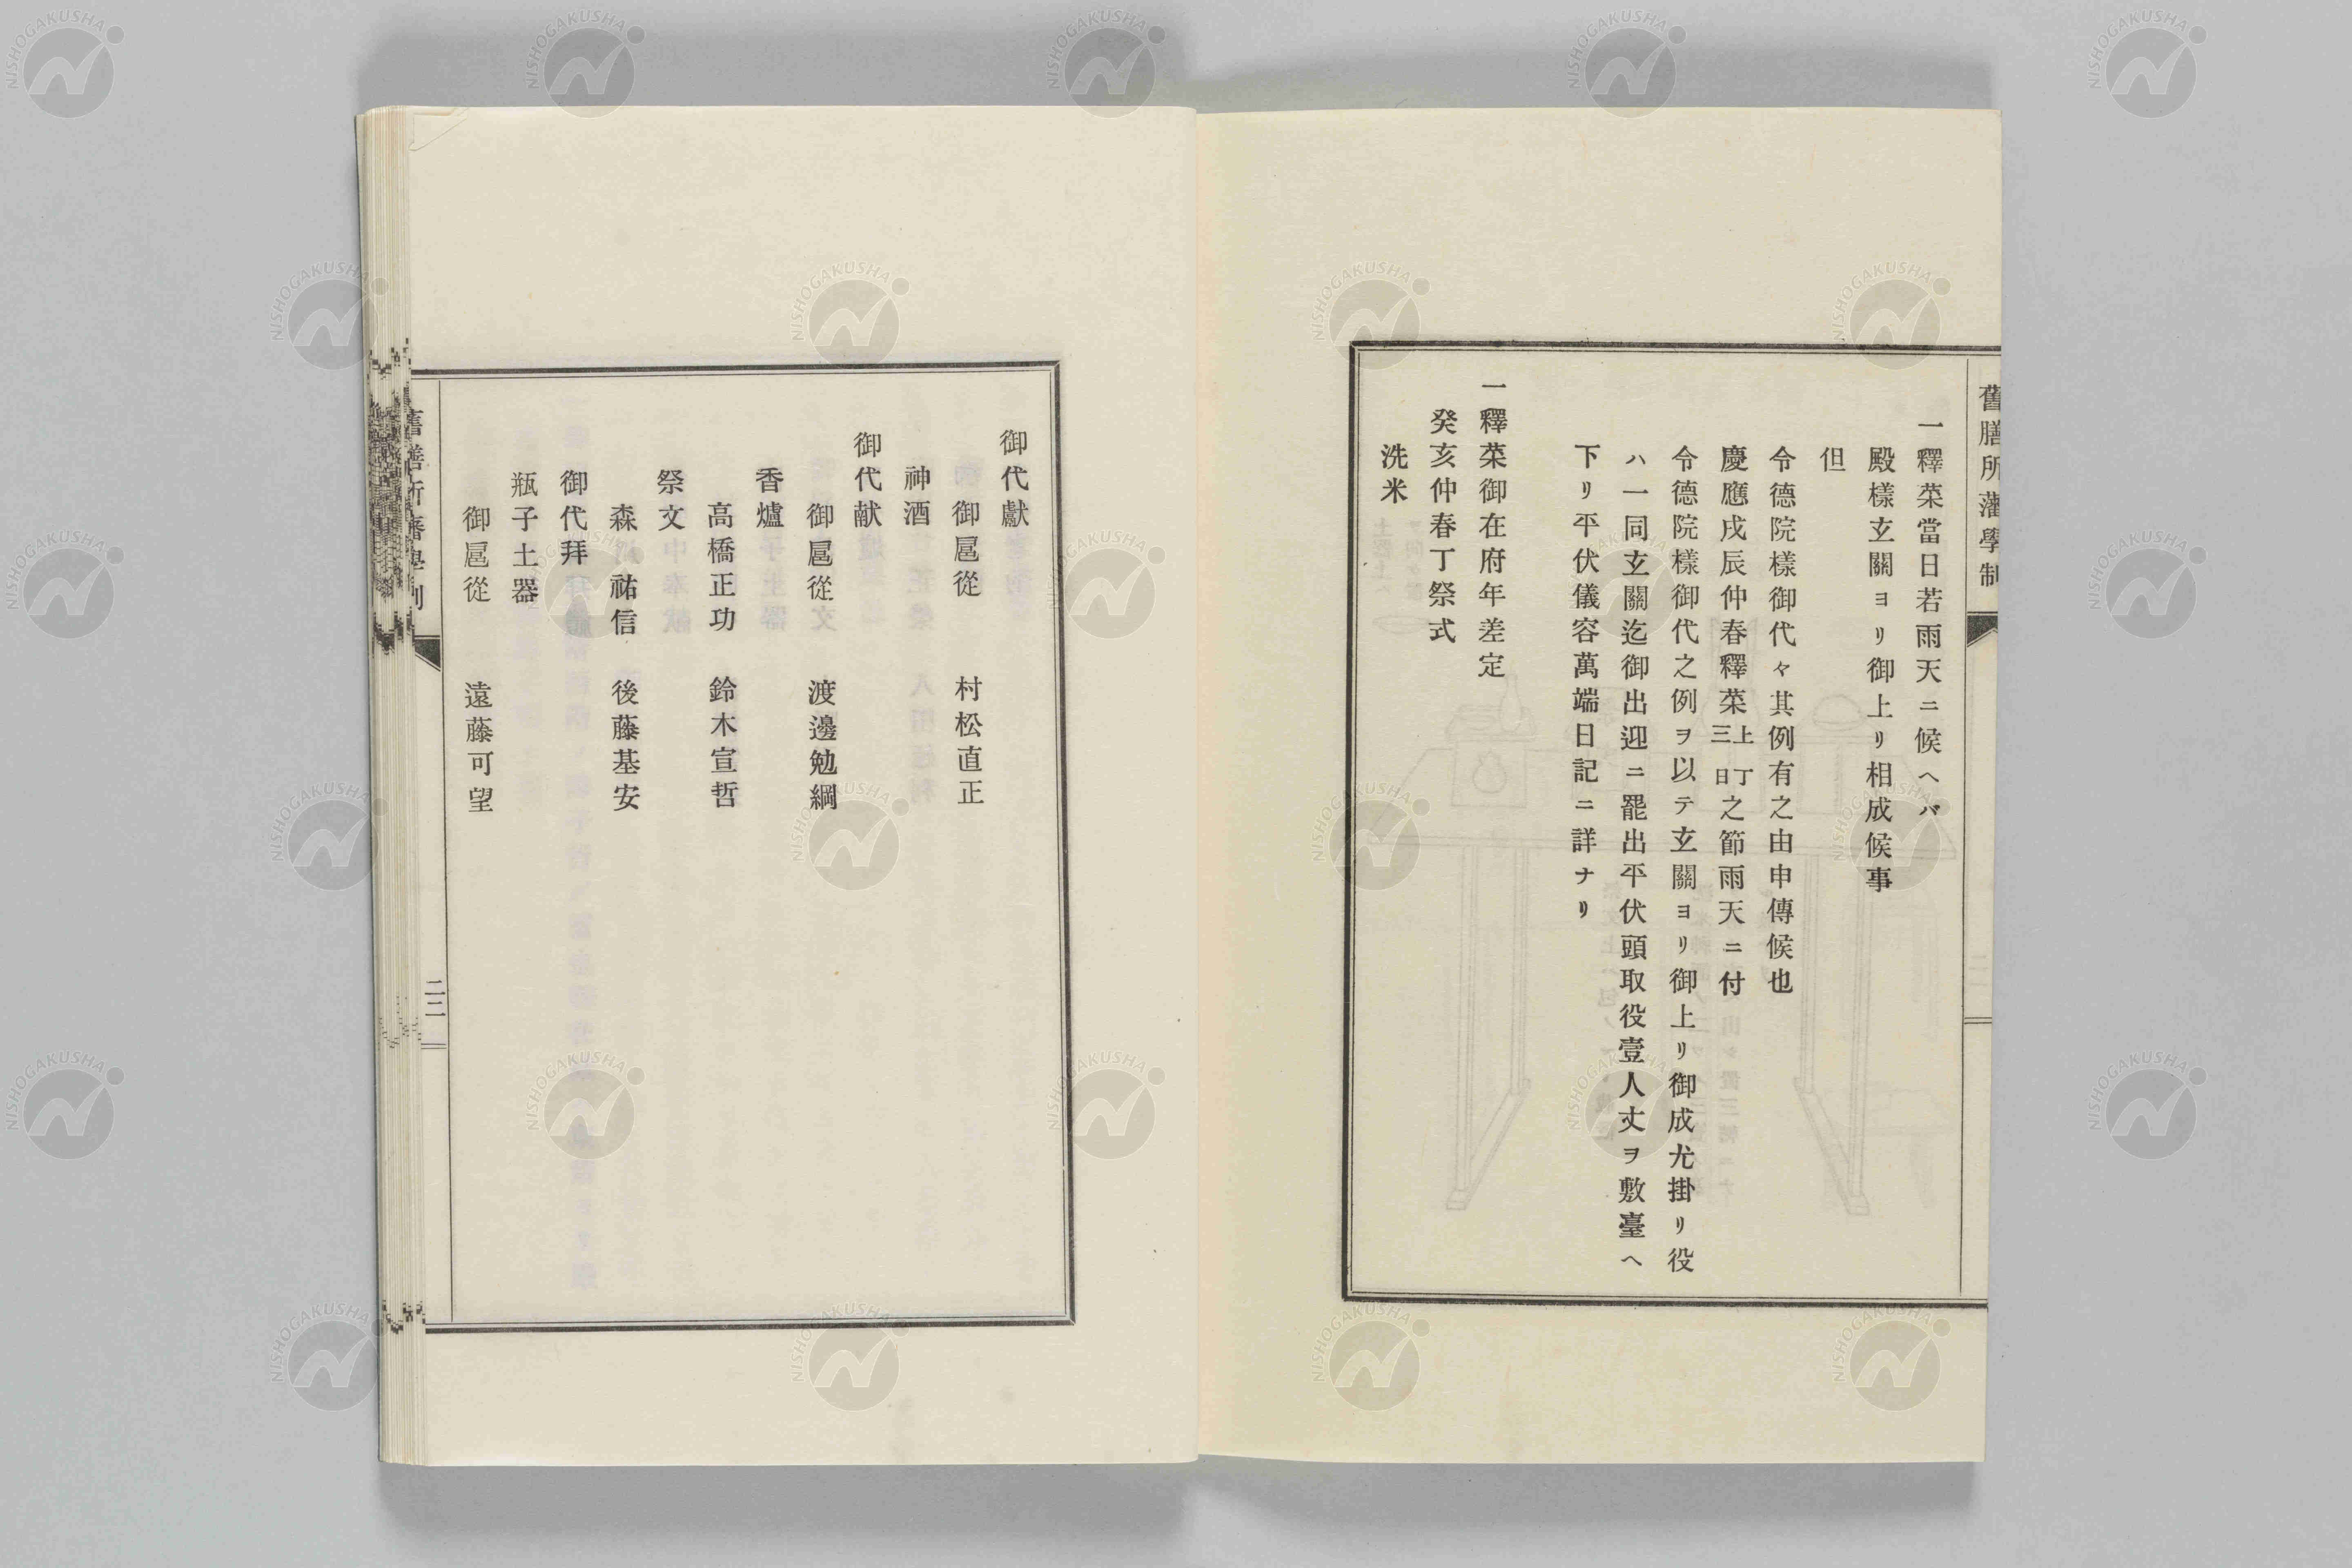 舊膳所藩學制
一釋菜當日若雨天ニ候ヘバ
殿樣玄關ヨリ御上リ相成候事
但
令德院樣御代々其例有之由申傳候也
慶應戌辰仲春釋菜上丁三日之節雨天ニ付
令德院樣御代之例ヲ以テ玄關ヨリ御上リ御成尤掛リ役
ハ一同玄關迄御出迎ニ罷出平伏頭取役壹人丈ヲ敷臺ヘ
下リ平伏儀容萬端日記ニ詳ナリ
一釋菜御在府年差定
癸亥仲春丁祭式
洗米
御代獻
御扈從 村松直正
神酒
御代献
御扈從 渡邊勉綱
香爐
高橋正功 鈴木宣哲
祭文
森祐信 後藤基安
御代拜
瓶子土器
御扈從 遠藤可望
舊膳所藩學制
二二
NISHOGAKUSHA